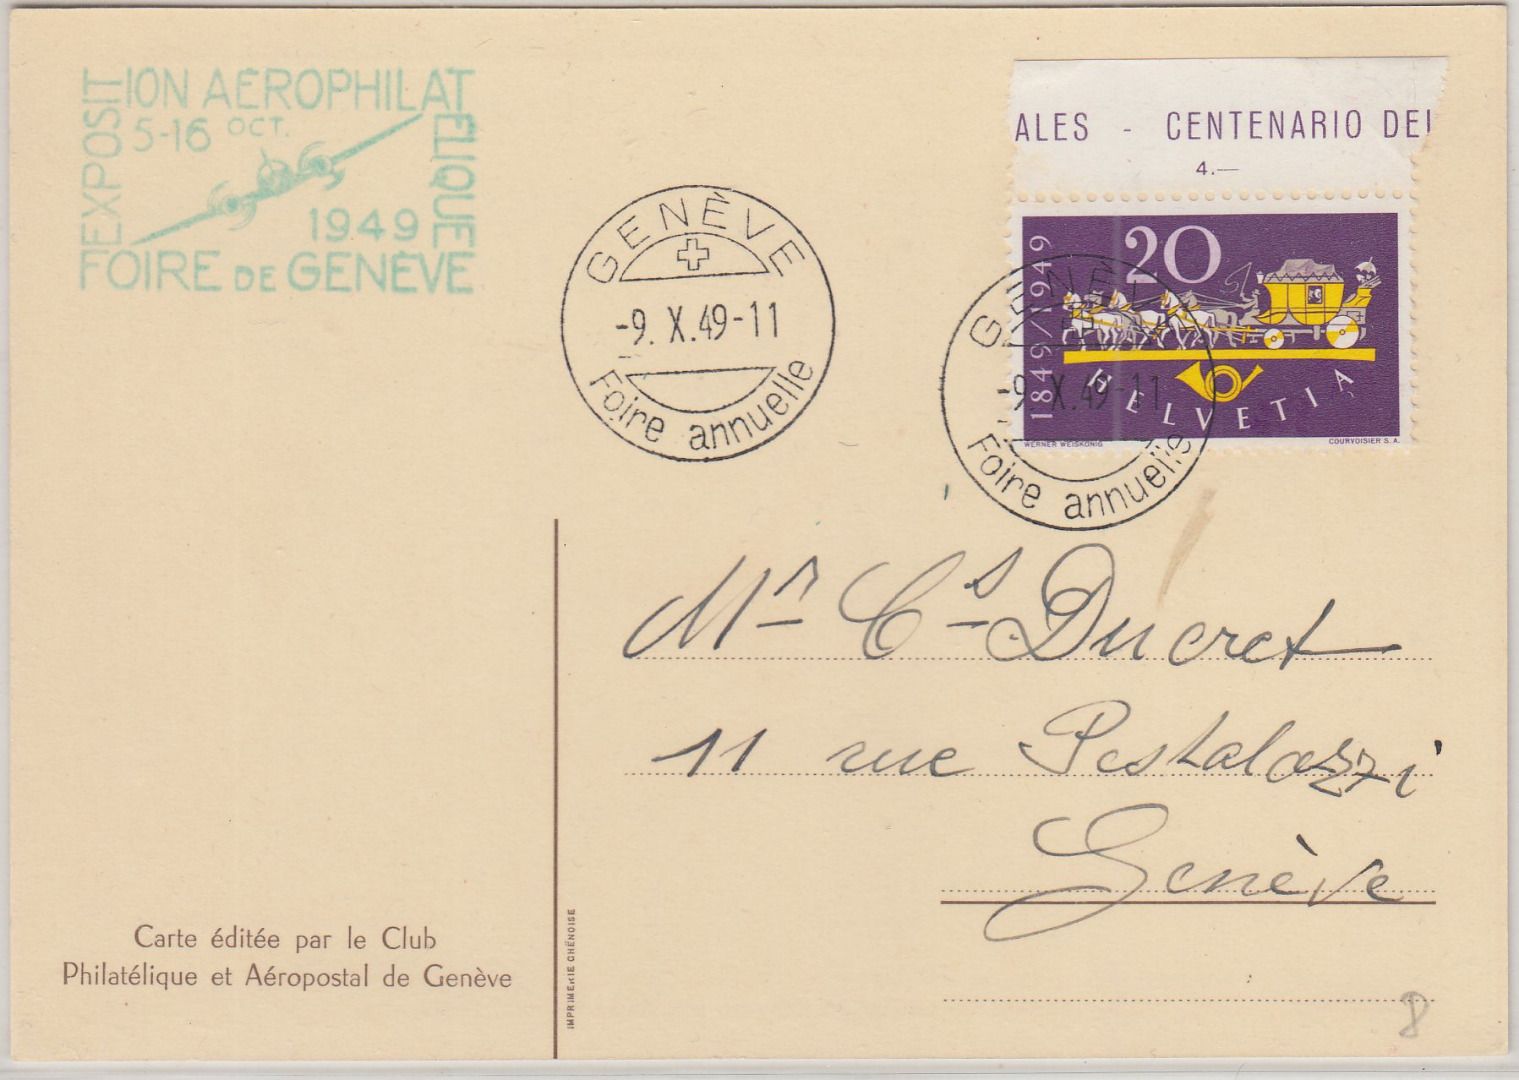 EXPOSITION AÉROPHILATÉLIQUE
5-16 OCT.
1949
FOIRE DE GENÈVE
GENÈVE
-9. X. 49-11
Foire annuelle
ALES - CENTENARIO DEL
4.—
20
1849/1949
HELVETIA
WERNER WEISKÖNIG
COURVOISIER S. A.
GENÈVE
-9. X. 49-11
Foire annuelle
Mr Cs Ducret
11 rue Pestalozzi
Genève
Carte éditée par le Club
Philatélique et Aéropostal de Genève
IMPRIMERIE CHÊNOISE
8